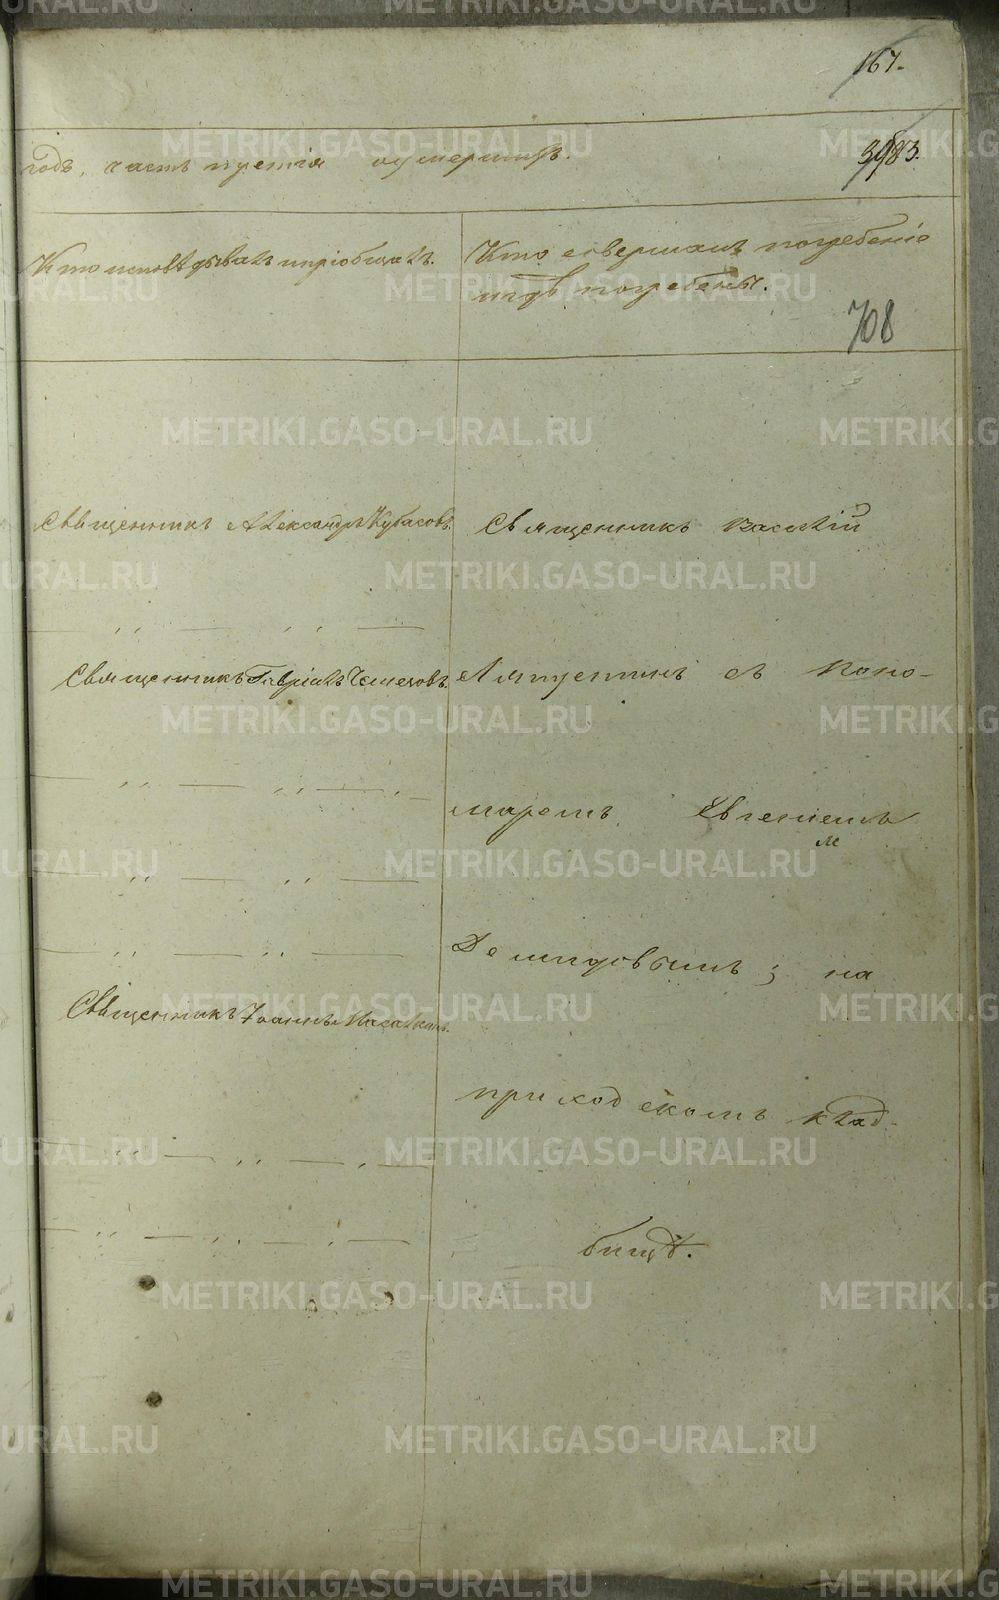 167.
годъ, часть третія о умершихъ.
3983.
Кто исповѣдывалъ и пріобщалъ.
Кто совершалъ погребеніе
и гдѣ погребены.
708
Священникъ Александръ Кубасовъ.
Священникъ Василій
— ,, — ,, —
Священникъ Гавріилъ Чемезовъ.
Ляпустинъ съ Поно-
— ,, — ,, —
маремъ Евгеніемъ
м
— ,, — ,, —
— ,, — ,, —
Демидовымъ; на
Священникъ Іоаннъ
приходскомъ клад-
— ,, — ,, —
— ,, — ,, —
бищѣ.
METRIKI.GASO-URAL.RU